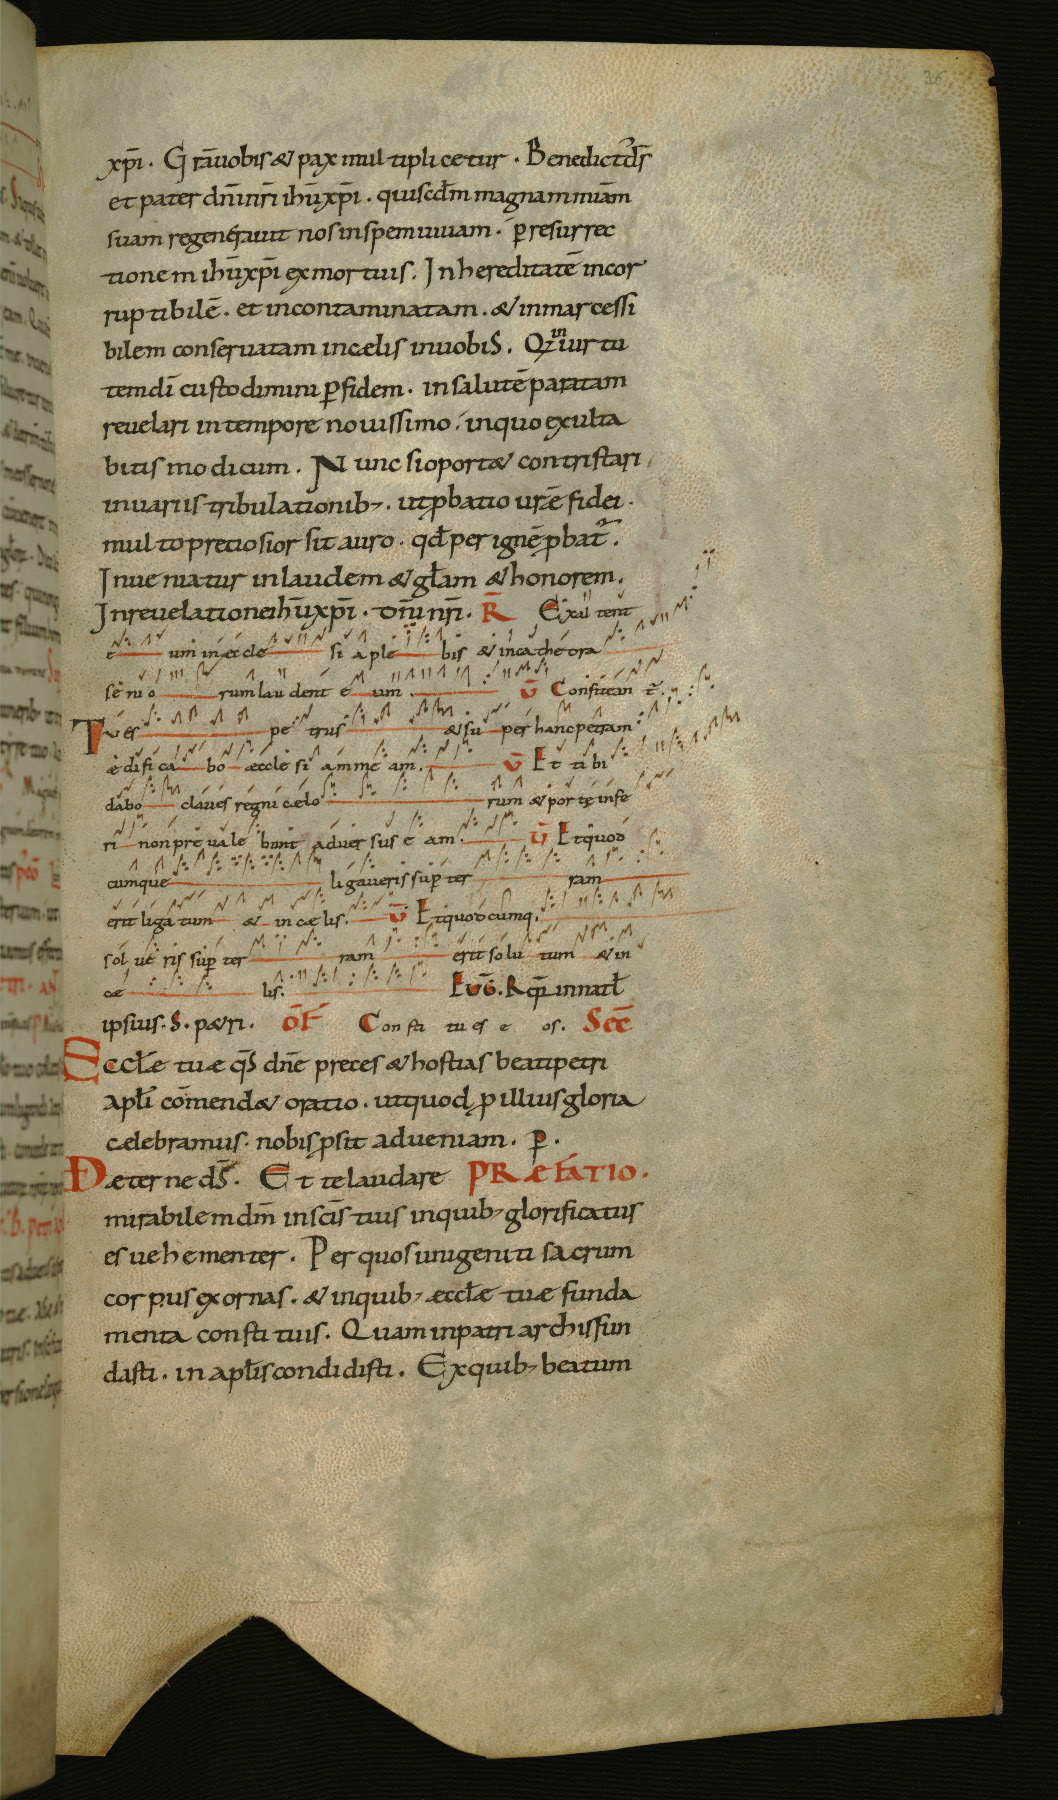 36
xp̄i. Gr̄auobis & pax multiplicetur. Benedict' d̄s
et pater dn̄i nr̄i ihūxp̄i. qui scd̄m magnam miām
suam regenerauit nos in spem uiuam. p̱ resurrec
tionem ihūxp̄i ex mortuis. In hereditatē incor
ruptibilē. et incontaminatam. & inmarcessi
bilem conseruatam in cælis in uobis. Q in uirtu
tem dī custodimini p̱ fidem. in salutē paratam
reuelari in tempore nouissimo. in quo exulta
bitis modicum. Nunc si oport& contristari
in uariis tribulationib;. ut p̱batio ur̄æ fidei.
multo pretiosior sit auro. qđ per ignē p̱bat̄.
Inueniatur in laudem & głam & honorem.
In reuelatione ihūxp̄i. dn̄i nr̄i. R̄ Exal tent
e um in eccle si a ple bis & in cathedra
se ni o rum lau dent e um. v̄ Confitean t̄.
Tu es pe trus & su per hanc petram
ædifi ca bo æccle si am me am. v̄ Et ti bi
dabo claues regni cælo rum & portę infe
ri non pre uale bunt aduer sus e am. v̄ Et quod
cumque ligaueris sup̱ ter ram
erit liga tum & in cæ lis. v̄ Et quodcumq.
sol ue ris sup̱ ter ram erit solu tum & in
cæ lis. Euḡ. R qp̄ in natł
ipsius. S. p&ri. ōF Con sti tu es e os. Sec̄
Ecclæ tuæ qs̄ dn̄e preces & hostias beati petri
apłi cōmend& oratio. ut quod p̱ illius gloria
cælebramus. nobis p̱sit ad ueniam. p̱.
Dæterne d̄s. Et te laudare PRÆFATIO.
mirabilem dm̄ in scīs tuis in quib; glorificatus
es uehementer. Per quos unigeniti sacrum
corpus exornas. & in quib; æccłæ tuæ funda
menta constituis. Quam in patriarchis fun
dasti. in apłis condidisti. Ex quib; beatum